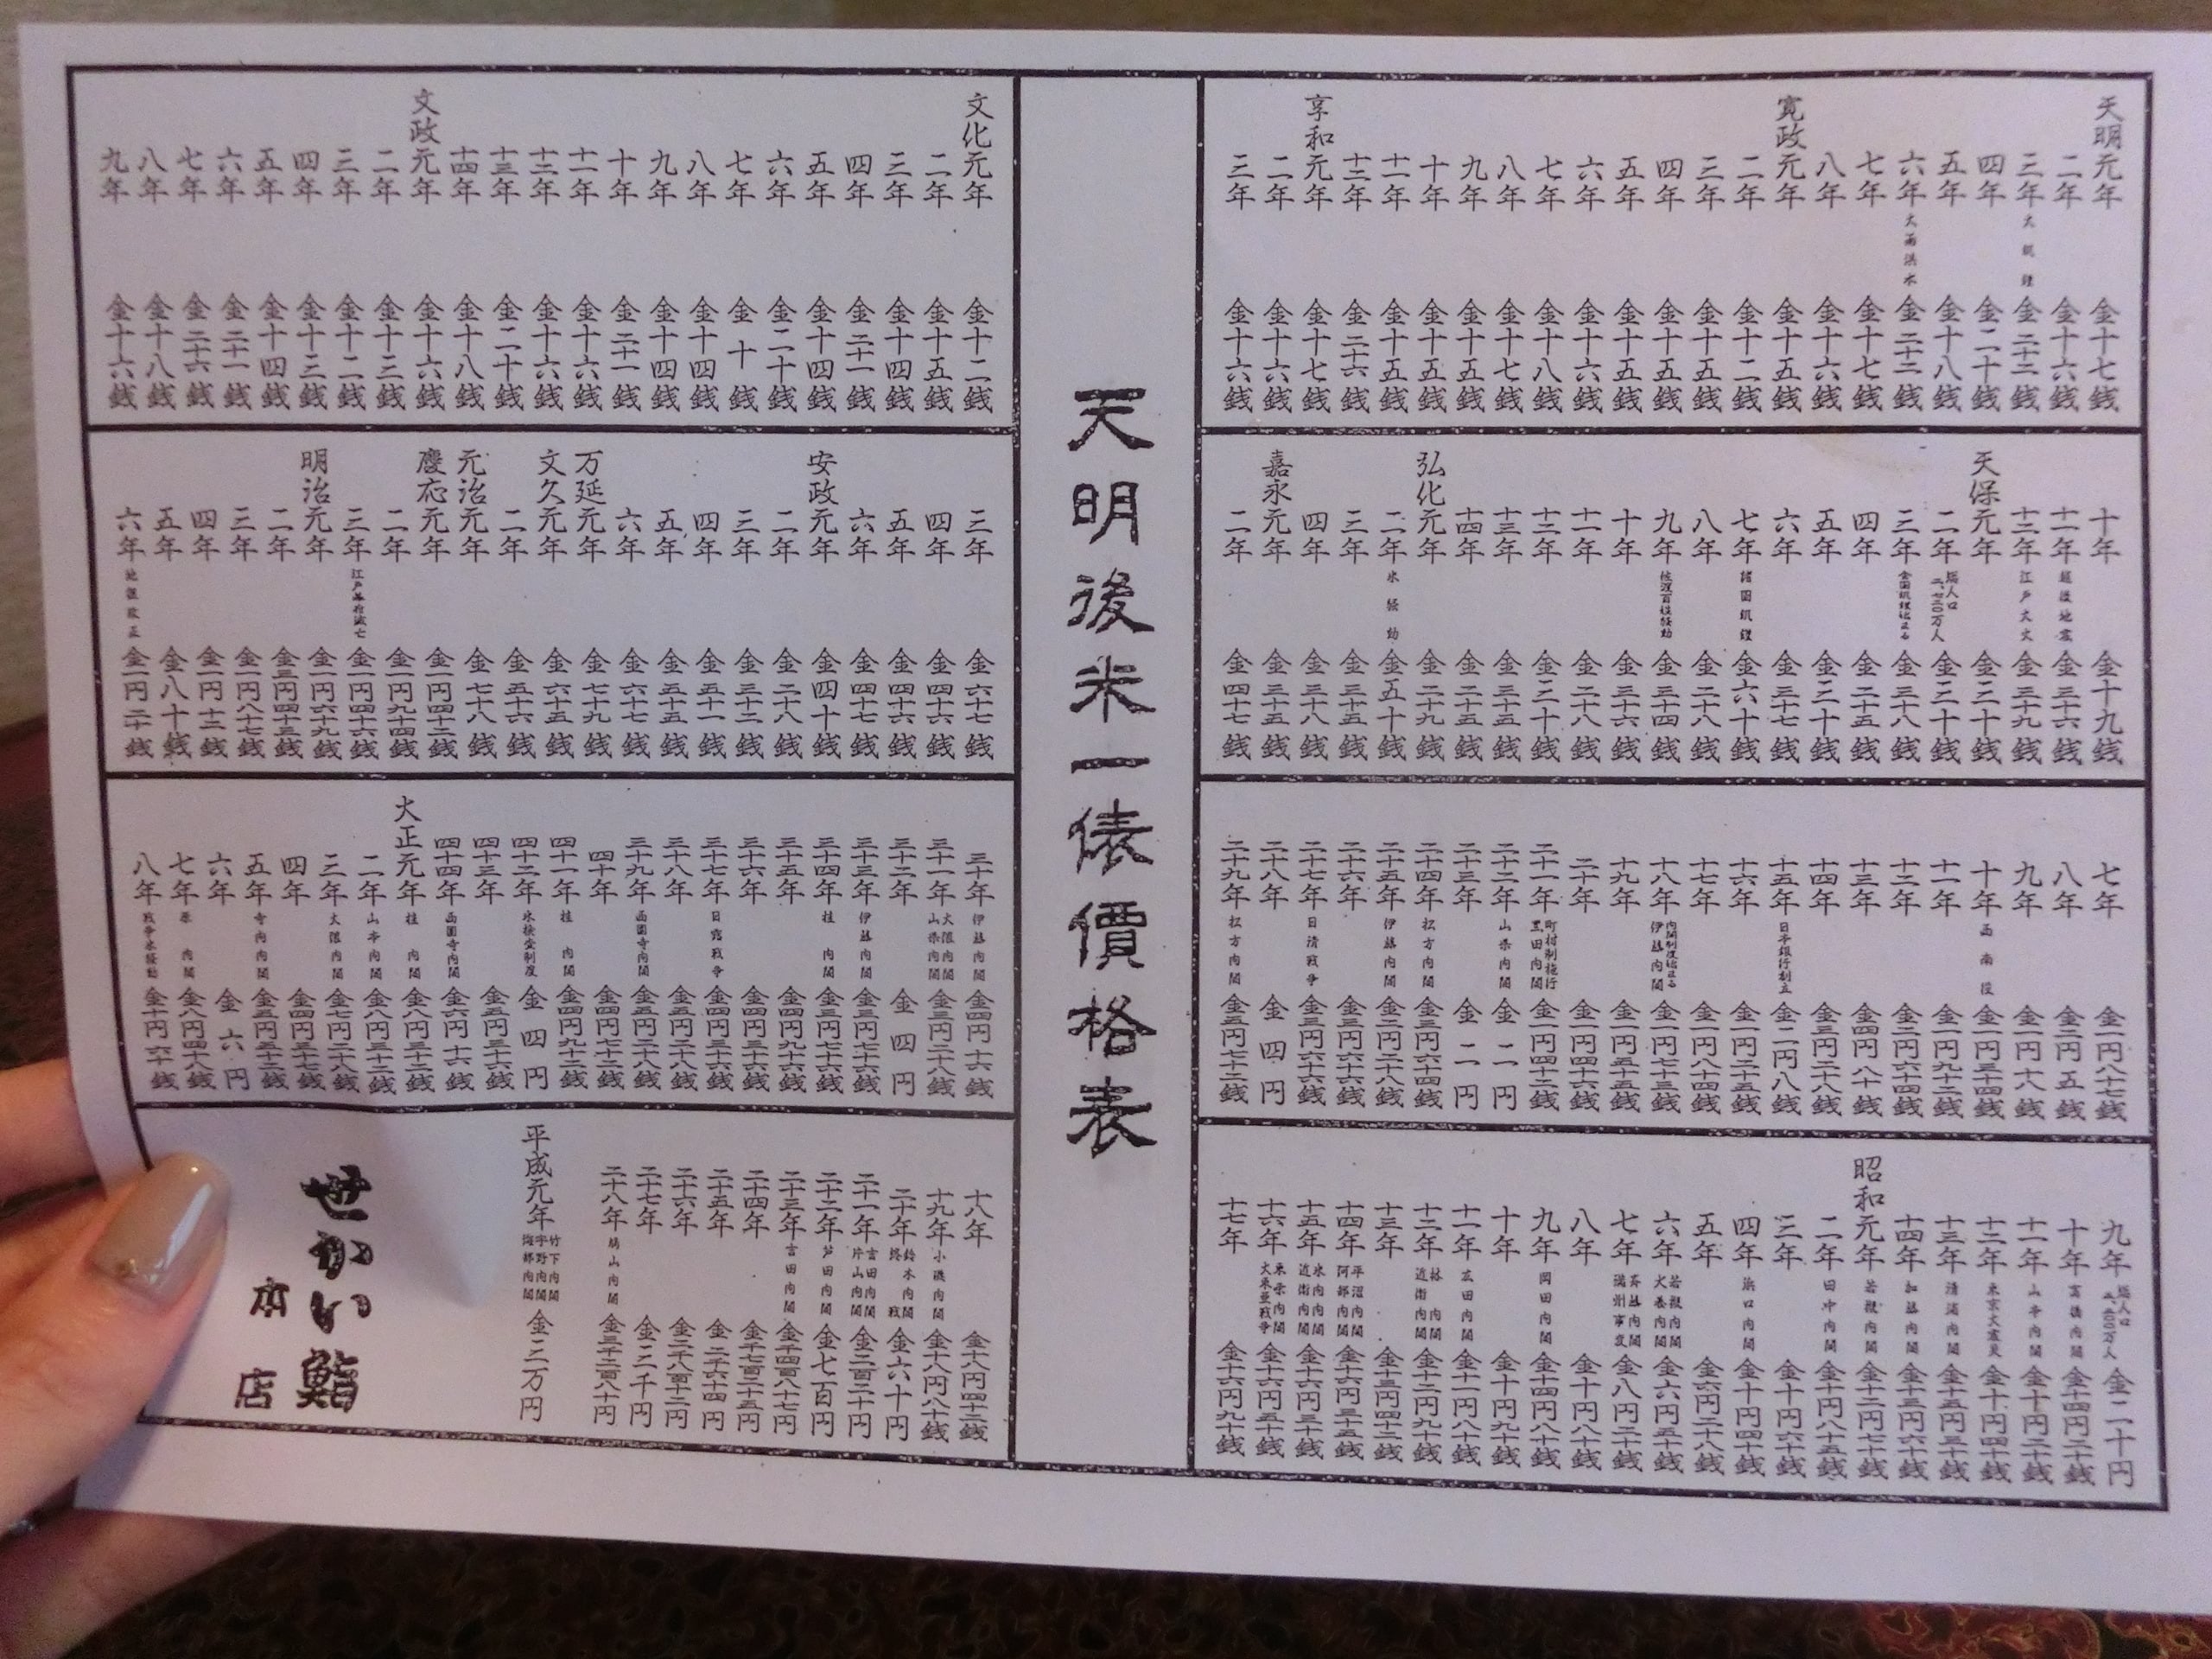 天明後米一俵價格表
天明元年 金十七銭
二年 金十六銭
三年 大飢饉 金二十二銭
四年 金二十銭
五年 金十八銭
六年 大雨洪水 金二十二銭
七年 金十七銭
八年 金十六銭
寛政元年 金十五銭
二年 金十二銭
三年 金十五銭
四年 金十五銭
五年 金十五銭
六年 金十六銭
七年 金十八銭
八年 金十七銭
九年 金十五銭
十年 金十五銭
十一年 金十五銭
十二年 金二十六銭
享和元年 金十七銭
二年 金十六銭
三年 金十六銭
文化元年 金十二銭
二年 金十五銭
三年 金十四銭
四年 金二十一銭
五年 金十四銭
六年 金二十銭
七年 金十銭
八年 金十四銭
九年 金十四銭
十年 金二十一銭
十一年 金十六銭
十二年 金十六銭
十三年 金二十銭
十四年 金十八銭
文政元年 金十六銭
二年 金十三銭
三年 金十二銭
四年 金十三銭
五年 金十四銭
六年 金二十一銭
七年 金二十六銭
八年 金十八銭
九年 金十六銭
十年 金十九銭
十一年 越後地震 金三十六銭
十二年 江戸大火 金三十九銭
天保元年 金三十銭
二年 総人口 二、七二〇万人 金三十銭
三年 全国飢饉始まる 金三十八銭
四年 金二十五銭
五年 金三十銭
六年 金三十七銭
七年 諸国飢饉 金六十銭
八年 金二十八銭
九年 佐渡百姓騒動 金三十四銭
十年 金三十六銭
十一年 金二十八銭
十二年 金三十銭
十三年 金三十五銭
十四年 金二十五銭
弘化元年 金二十九銭
二年 米騒動 金五十銭
三年 金三十五銭
四年 金三十八銭
嘉永元年 金三十五銭
二年 金四十七銭
三年 金六十七銭
四年 金四十六銭
五年 金四十六銭
六年 金四十七銭
安政元年 金四十銭
二年 金二十八銭
三年 金三十二銭
四年 金五十一銭
五年 金五十五銭
六年 金六十七銭
万延元年 金七十九銭
文久元年 金六十五銭
二年 金五十六銭
元治元年 金七十八銭
慶応元年 金一円四十二銭
二年 金一円九十四銭
三年 江戸幕府滅亡 金一円四十六銭
明治元年 金一円六十九銭
二年 金三円四十三銭
三年 金一円八十七銭
四年 金一円十二銭
五年 金八十銭
六年 地租改正 金一円二十銭
七年 金一円八十七銭
八年 金二円五銭
九年 金一円十八銭
十年 西南役 金一円三十四銭
十一年 金一円九十二銭
十二年 金二円六十四銭
十三年 金四円八十銭
十四年 金三円二十八銭
十五年 日本銀行創立 金二円八銭
十六年 金一円二十五銭
十七年 金一円八十四銭
十八年 内閣制度始まる 伊藤内閣 金一円七十三銭
十九年 金一円五十五銭
二十年 金一円四十六銭
二十一年 町村制施行 黒田内閣 金一円四十二銭
二十二年 山県内閣 金二円
二十三年 金二円
二十四年 松方内閣 金三円六十四銭
二十五年 伊藤内閣 金二円二十八銭
二十六年 金三円六十六銭
二十七年 日清戦争 金三円六十六銭
二十八年 金四円
二十九年 松方内閣 金五円七十二銭
三十年 伊藤内閣 金四円十六銭
三十一年 大隈内閣 山県内閣 金三円二十八銭
三十二年 金四円
三十三年 伊藤内閣 金三円七十六銭
三十四年 桂内閣 金三円七十六銭
三十五年 金四円九十六銭
三十六年 金四円三十六銭
三十七年 日露戦争 金四円三十六銭
三十八年 金五円二十八銭
三十九年 西園寺内閣 金五円二十八銭
四十年 金四円七十二銭
四十一年 桂内閣 金四円九十二銭
四十二年 米検査制度 金四円
四十三年 金五円三十六銭
四十四年 西園寺内閣 金六円十六銭
大正元年 桂内閣 金八円三十二銭
二年 山本内閣 金八円三十二銭
三年 大隈内閣 金七円二十八銭
四年 金四円三十七銭
五年 寺内内閣 金五円三十二銭
六年 金六円
七年 原内閣 金八円四十八銭
八年 戦争米騒動 金十円六十銭
九年 総人口 金二十円
十年 高橋内閣 金十四円二十銭
十一年 山本内閣 金十円二十銭
十二年 東京大震災 金十円四十銭
十三年 清浦内閣 金十五円三十銭
十四年 加藤内閣 金十三円六十銭
昭和元年 若槻内閣 金十二円七十銭
二年 田中内閣 金十円八十五銭
三年 金十円六十銭
四年 浜口内閣 金十円四十銭
五年 金六円二十八銭
六年 若槻内閣 犬養内閣 金六円五十銭
七年 斉藤内閣 満州事変 金八円二十銭
八年 金十円八十銭
九年 岡田内閣 金十四円八十銭
十年 金十円九十銭
十一年 広田内閣 金十一円八十銭
十二年 林内閣 近衛内閣 金十二円九十銭
十三年 金十三円四十二銭
十四年 平沼内閣 阿部内閣 金十六円三十五銭
十五年 米内内閣 近衛内閣 金十六円三十銭
十六年 東条内閣 大東亜戦争 金十六円五十銭
十七年 金十六円九十銭
十八年 金十八円四十二銭
十九年 小磯内閣 金十八円八十銭
二十年 鈴木内閣 終戦 金六十円
二十一年 吉田内閣 片山内閣 金二百二十円
二十二年 芦田内閣 金七百円
二十三年 吉田内閣 金千四百八十七円
二十四年 金千七百二十五円
二十五年 金二千六十四円
二十六年 金二千八百十二円
二十七年 金三千円
二十八年 鳩山内閣 金三千二百八十円
平成元年 竹下内閣 宇野内閣 海部内閣 金二万円
せかい鮨
本店